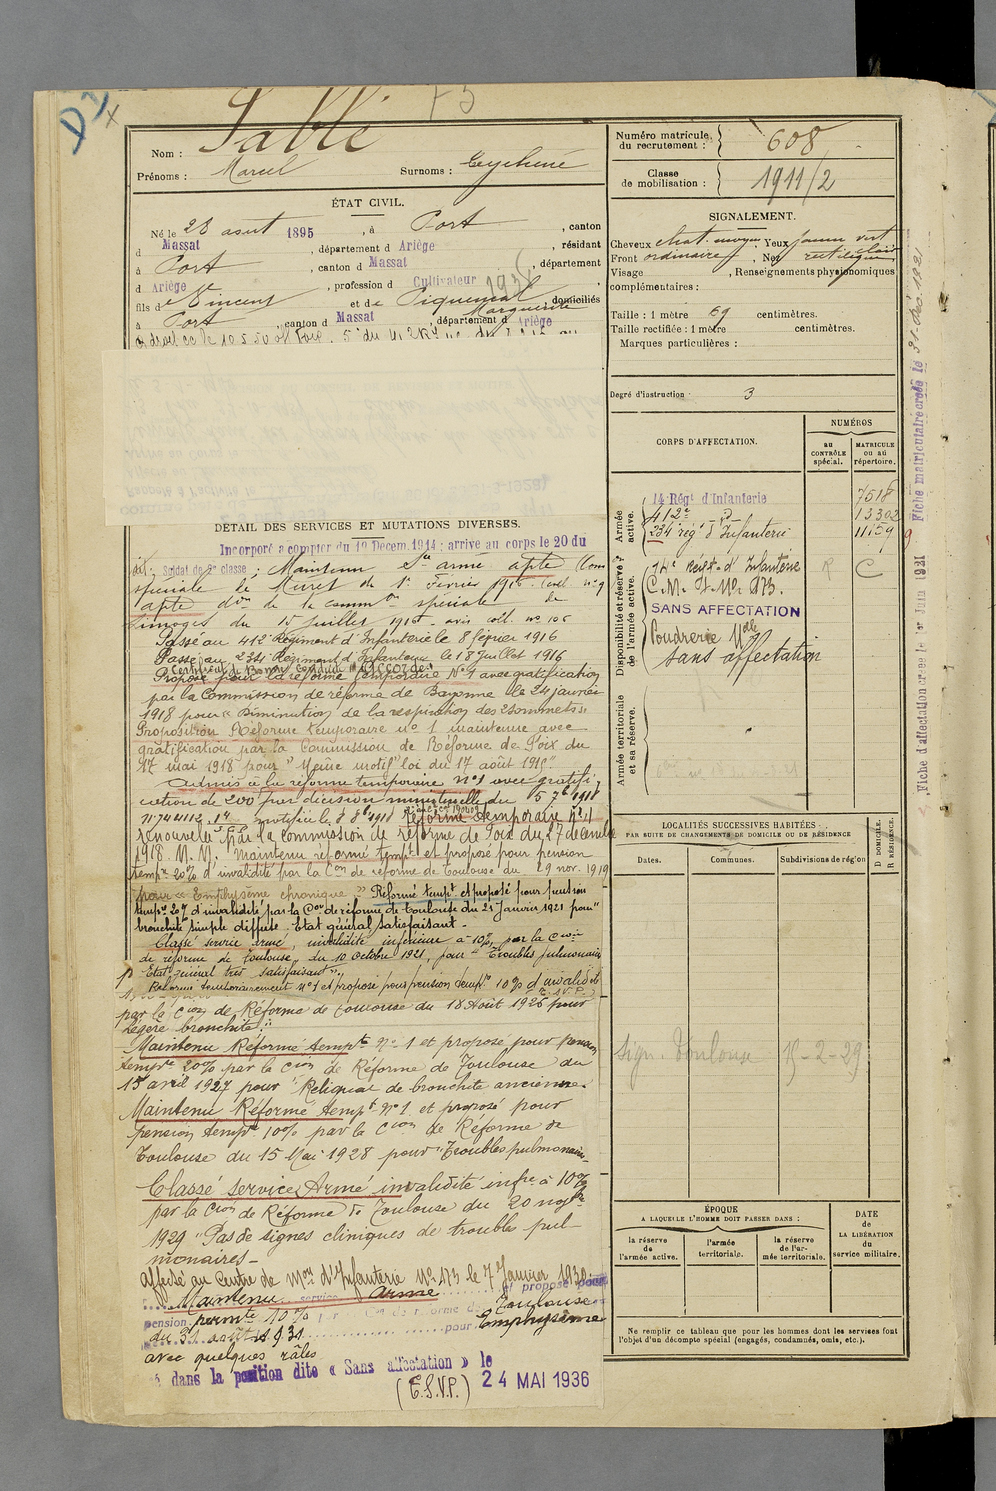 Sablé
Nom :
Prénoms : Marcel
Surnoms :
ÉTAT CIVIL.
Né le 28 août 1895, à Port, canton
d Massat, département d Ariège, résidant
à Port, canton d Massat, département
d Ariège, profession d Cultivateur
fils de Vincent et de Piquemal Marguerite, domiciliés
à Port, canton d Massat, département d Ariège
DÉTAIL DES SERVICES ET MUTATIONS DIVERSES.
Incorporé a compter du 19 Décem. 1914 : arrive au corps le 20 du
dit. Soldat de 2e classe ; Maintenu Sce armé apte Com
spéciale de Muret du 1er Février 1916
apte don de la common spéciale de
Limoges du 15 Juillet 1915 - avis coll. no 106
Passé au 412e Régiment d'Infanterie le 8 février 1916
Passé au 234 Régiment d'Infanterie le 18 Juillet 1916
Proposé pour la réforme temporaire No 1 avec gratification
par la Commission de réforme de Bayonne le 24 janvier
1918 pour "Diminution de la respiration des 2 sommets"
Proposition Réforme temporaire no 1 maintenue avec
gratification par la Commission de Réforme de Foix du
17 mai 1918 pour "Même motif" loi du 17 août 1915"
Admis à la réforme temporaire no 1 avec gratifi
cation de 200f par décision ministérielle du 5 7bre 1918
Réforme temporaire No 1
renouvelée par la Commission de réforme de Foix du 27 décembre
1918. M. M. Maintenu réformé tempre et proposé pour pension
tempre 20% d'invalidité par la Con de réforme de Toulouse du 29 nov. 1919
pour "Emphysème chronique" Réformé tempt et proposé pour pension
tempre 20% d'invalidité par la Con de réforme de Toulouse du 21 Janvier 1921 pour "
bronchite simple diffuse - Etat général satisfaisant -
Classé service armé, invalidité inférieure à 10% par la Cion
de réforme de Toulouse, du 10 octobre 1921, pour "Troubles pulmonaires
Etat général très satisfaisant"
Réformé temporairement no 1 et proposé pour pension tempre 10% d'invalidité
par la Cion de Réforme de Toulouse du 18 Août 1925 pour
"légère bronchite."
Maintenu Réformé tempte No 1 et proposé pour pension
tempre 20% par la Cion de Réforme de Toulouse du
15 avril 1927 pour "Reliquat de bronchite ancienne."
Maintenu Réformé tempt No 1. et proposé pour
pension tempre 10% par la Cion de Réforme de
Toulouse du 15 Mai 1928 pour "Troubles pulmonaires
Classé service Armé invalidité infre à 10%
par la Cion de Réforme de Toulouse du 20 novbre
1929 "Pas de signes cliniques de troubles pul
monaires -
Affecté au Centre de Mon d'Infanterie No 173 le 7 Janvier 1930
Maintenu service Armé et proposé pour
pension permte 10% par Con de réforme de Toulouse
du 31 août 1931 pour Emphysème
avec quelques râles
dans la position dite « Sans affectation » le
(T.S.V.P.) 24 MAI 1936
Numéro matricule du recrutement : 608
Classe de mobilisation : 1911/2
SIGNALEMENT.
Cheveux chat. moyen Yeux jaune vert clair
Front ordinaire, Nez rectiligne
Visage , Renseignements physionomiques
complémentaires :
Taille : 1 mètre 69 centimètres.
Taille rectifiée : 1 mètre centimètres.
Marques particulières :
Degré d'instruction : 3
CORPS D'AFFECTATION.
NUMÉROS
AU CONTRÔLE spécial.
MATRICULE ou au répertoire.
Armée active.
14 Régt d'Infanterie 7518
412e do 13302
234 rég d'Infanterie 11159
Disponibilité et réserve de l'armée active.
14e Régt d'Infanterie
C.M. I. No 173.
SANS AFFECTATION
Poudrerie Nle
sans affectation
Armée territoriale et sa réserve.
LOCALITÉS SUCCESSIVES HABITÉES
PAR SUITE DE CHANGEMENTS DE DOMICILE OU DE RÉSIDENCE
Dates.
Communes.
Subdivisions de région
D DOMICILE.
R RÉSIDENCE.
Sign. Toulouse 15-2-29
ÉPOQUE
A LAQUELLE L'HOMME DOIT PASSER DANS :
la réserve de l'armée active.
l'armée territoriale.
la réserve de l'armée territoriale.
DATE de LA LIBÉRATION du service militaire.
Ne remplir ce tableau que pour les hommes dont les services font
l'objet d'un décompte spécial (engagés, condamnés, omis, etc.).
Fiche matriculaire créée le 31 Déc. 1921
Fiche d'affectation créée le 1er Juin 1931